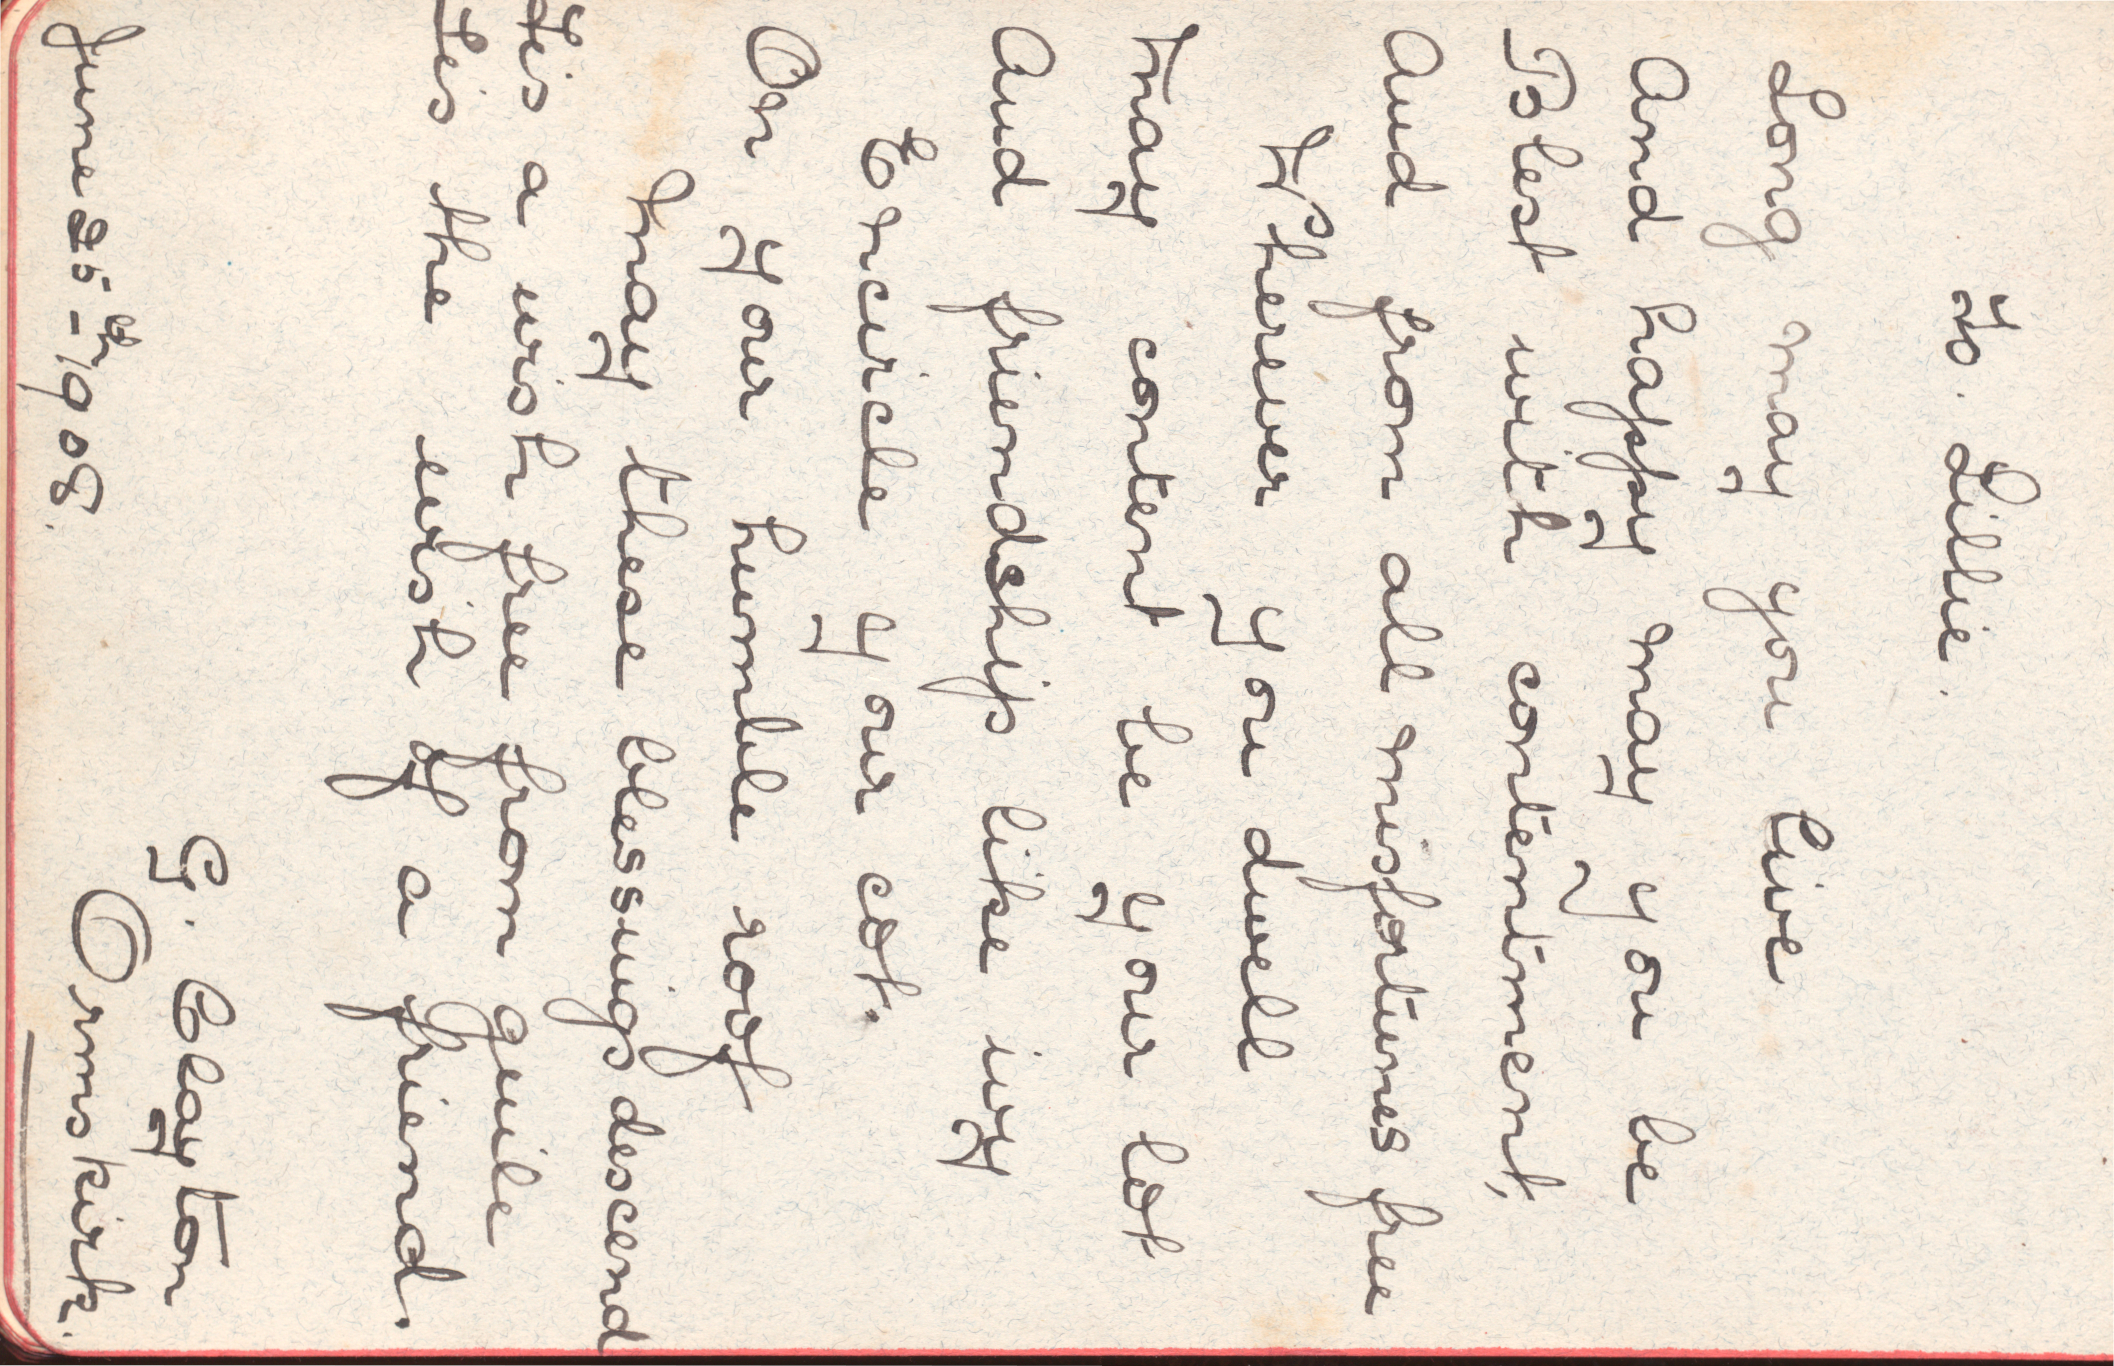 To. Lillie.
Long may you live
And happy may you be
Blest with contentment,
And from all misfortunes free
Wherever you dwell
May content be your lot
And friendship like ivy
Encircle your cot.
On your humble roof
May these blessings descend
Tis a wish free from guile
Tis the wish of a friend.
G. Clayton
June 25th-1908. Ormskirk.